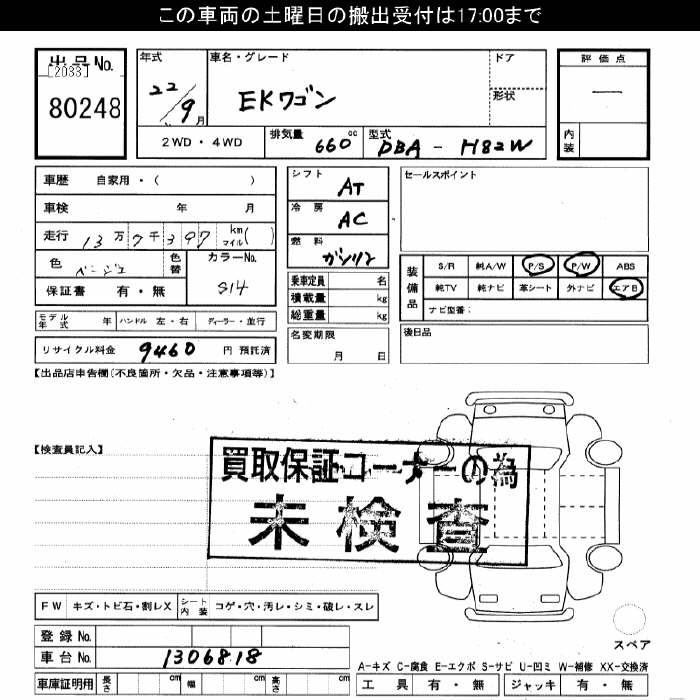 この車両の土曜日の搬出受付は17:00まで
出品No.
[2033]
80248
年式
22/9月
車名・グレード
EKワゴン
ドア
形状
評価点
―
内装
2WD・4WD
排気量 660cc
型式 DBA-H82W
車歴 自家用・( )
車検 年 月
走行 13万7千397 km マイル( )
色 ベージュ 色替
カラーNo.
S14
保証書 有・無
シフト AT
冷房 AC
燃料 ガソリン
乗車定員 名
積載量 kg
総重量 kg
セールスポイント
装備品
S/R 純A/W P/S P/W ABS
純TV 純ナビ 革シート 外ナビ エアB
ナビ型番:
モデル年式 年 ハンドル 左・右 ディーラー・並行
名変期限
月 日
後日品
リサイクル料金 9460 円 預託済
【出品店申告欄(不良箇所・欠品・注意事項等)】
【検査員記入】
買取保証コーナーの為
未検査
FW キズ・トビ石・割レX シート内装 コゲ・穴・汚レ・シミ・破レ・スレ
スペア
登録No.
車台No. 1306818
A-キズ C-腐食 E-エクボ S-サビ U-凹ミ W-補修 XX-交換済
車庫証明用 長さ cm 幅 cm 高さ cm
工具 有・無 ジャッキ 有・無